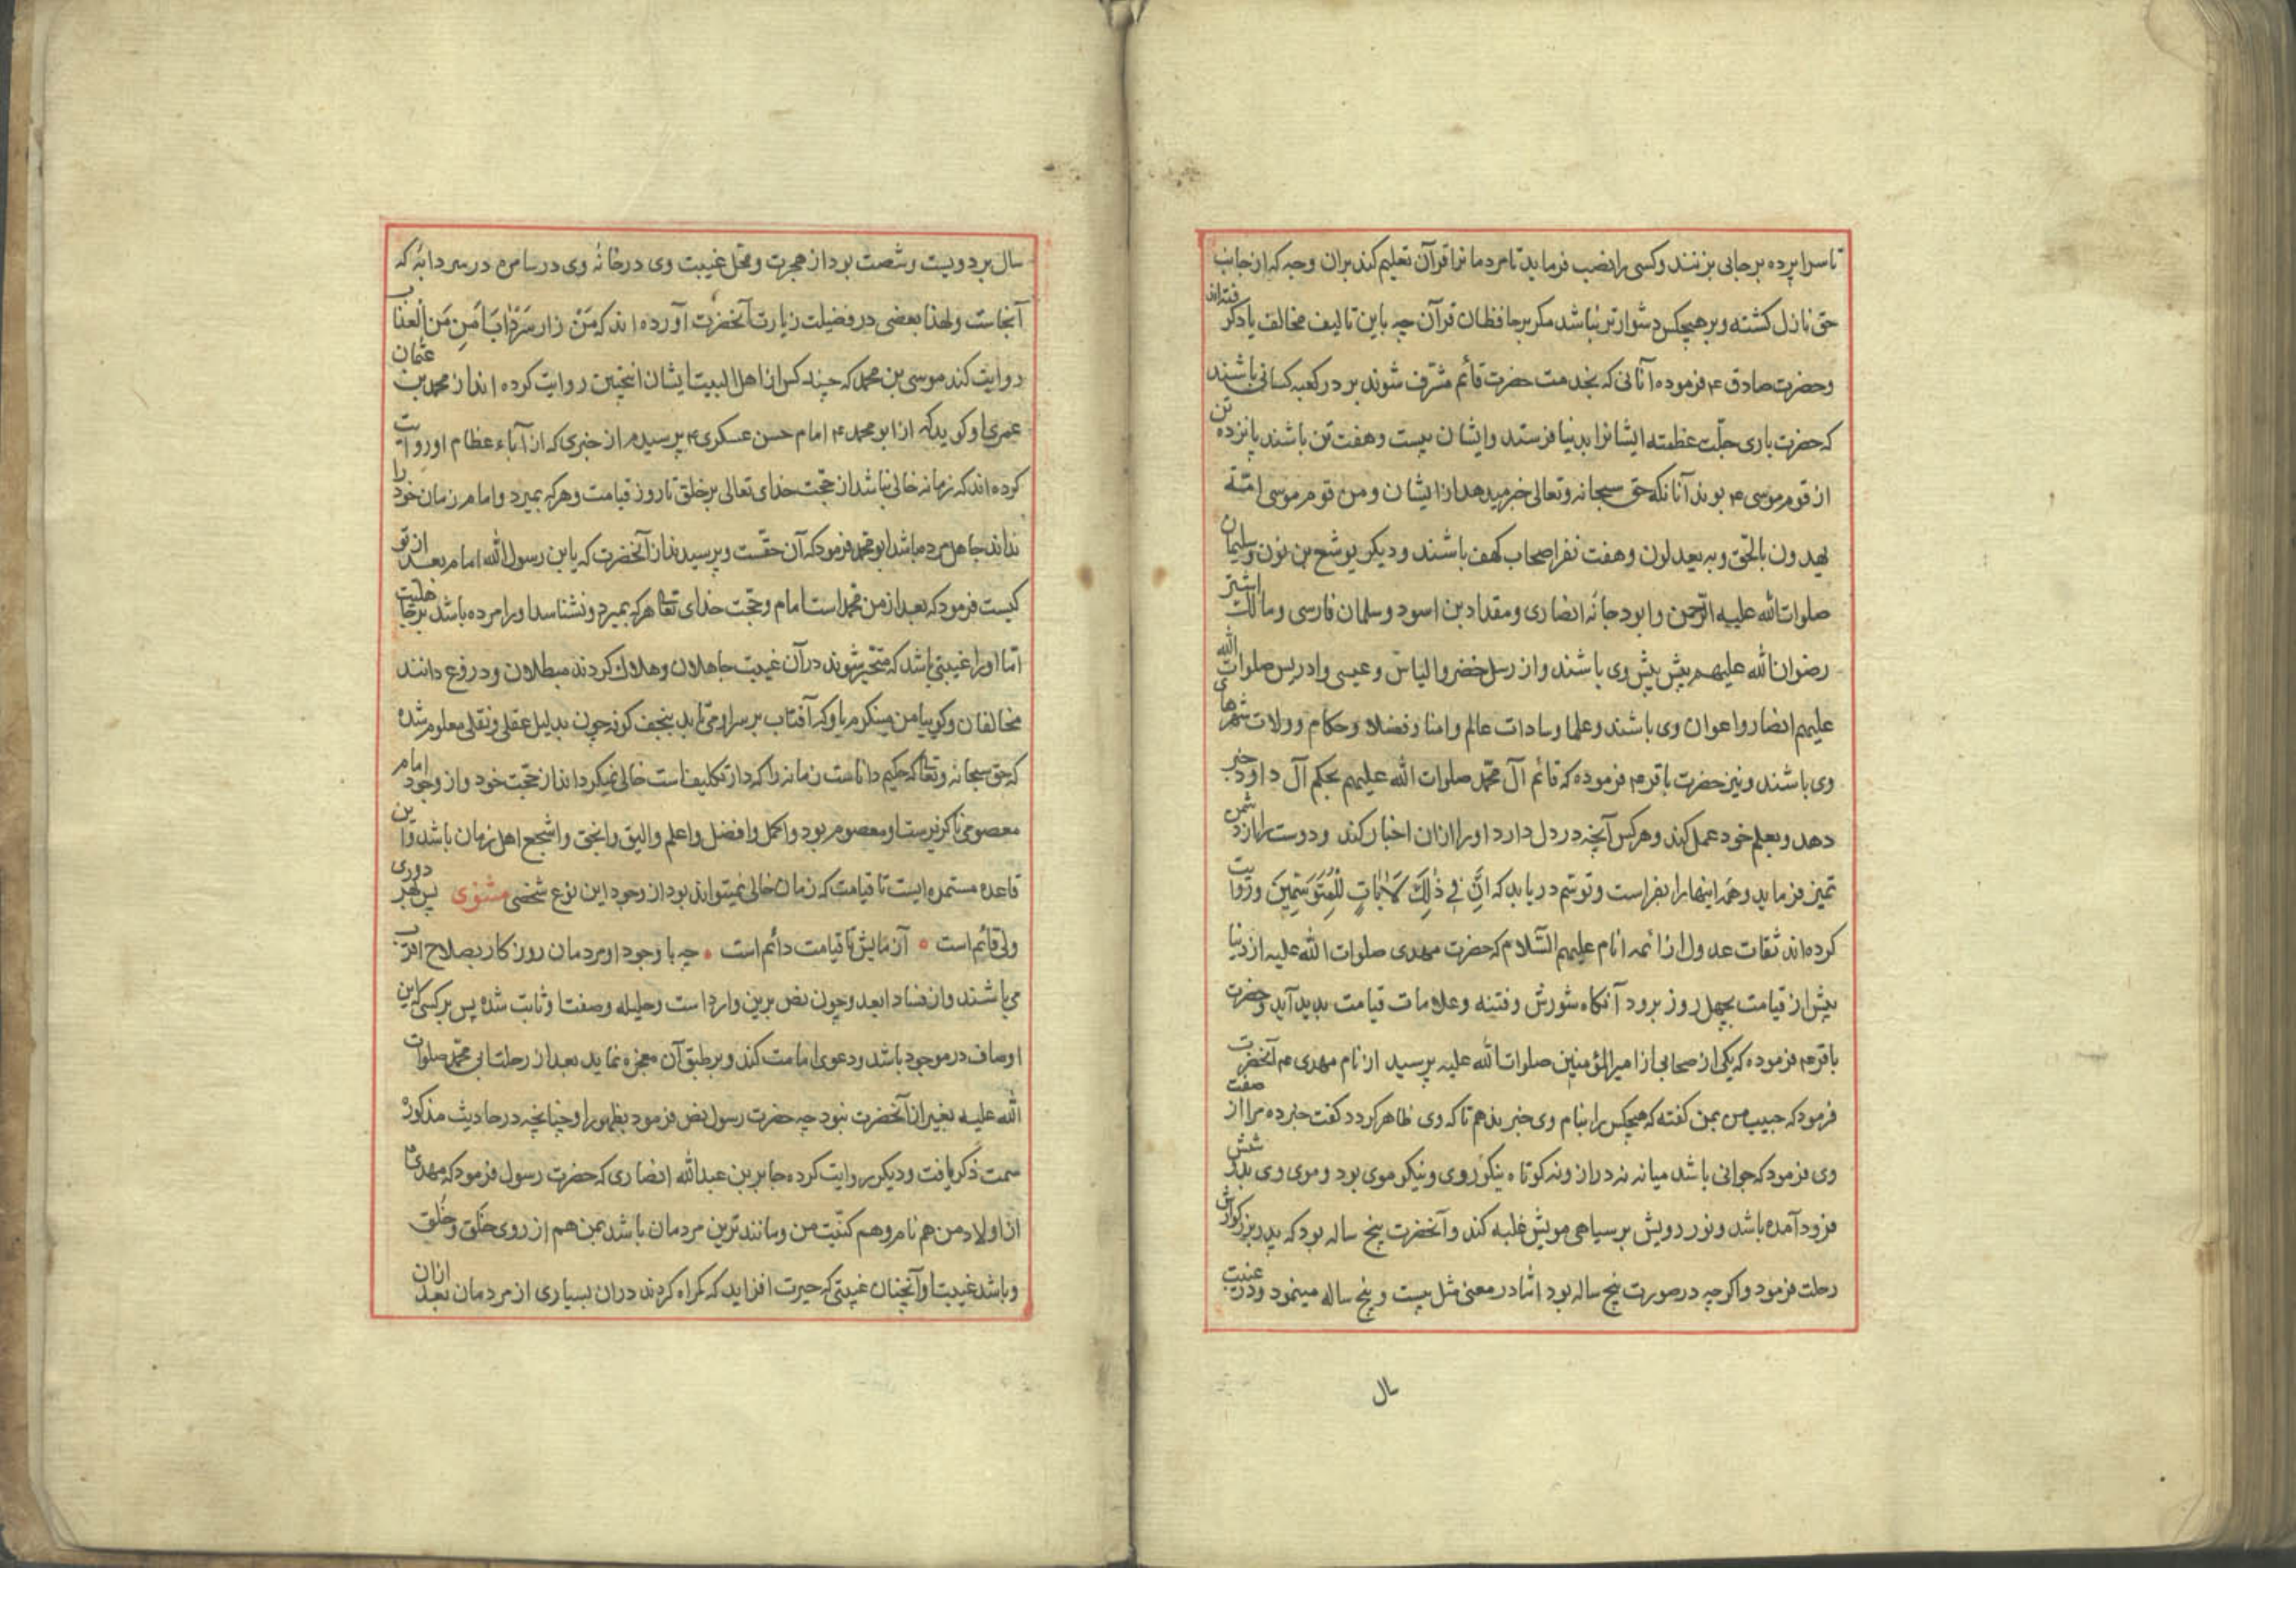 تا سراپرده برجائی بزنند وکسی را نصب فرماید تا مردمانرا قرآن تعلیم کند بران وجه که از جانب
حق نازل کشته وبر هیچکس دشوارتر نباشد مکر بر حافظان قرآن چه باین تالیف مخالف یاد کرفته‌اند
وحضرت صادق ۴ فرموده آنانی که بخدمت حضرت قائم مشرف شوند بر در کعبه کسانی باشند
که حضرت باری جلّت عظمته ایشانرا بدنیا فرستد وایشان بیست وهفت تن باشند پانزده تن
از قوم موسی ۴ بوند آنانکه حق سبحانه وتعالی خبر میدهد از ایشان ومن قوم موسی امّة
یهدون بالحق وبه یعدلون وهفت نفر اصحاب کهف باشند ودیکر یوشع بن نون وسلیمان
صلوات الله علیه الرحمن وابو دجانه انصاری ومقداد بن اسود وسلمان فارسی ومالک اشتر
رضوان الله علیهم پیش پیش وی باشند واز رسل خضر والیاس وعیسی وادریس صلوات الله
علیهم انصار واعوان وی باشند وعلما وسادات عالم وامنا وفضلا وحکام وولات شهرهای
وی باشند ونیز حضرت باقر ۴ فرموده که قائم آل محمّد صلوات الله علیهم بحکم آل داود خبر
دهد وبعلم خود عمل کند وهر کس آنچه در دل دارد اورا ازان اخبار کند ودوست را از دشمن
تمیز فرماید وهمه اینها را بفراست وتوسّم دریابد که انّ فی ذٰلک لآیات للمتوسّمین وروایت
کرده‌اند ثقات عدول از ائمه انام علیهم السّلام که حضرت مهدی صلوات الله علیه از دنیا
پیش از قیامت بچهل روز برود آنکاه شورش وفتنه وعلامات قیامت بدید آید وحضرت
باقر ۴ فرموده که یکی از صحابی از امیرالمؤمنین صلوات الله علیه پرسید از نام مهدی ۴ آنحضرت
فرمود که حبیب من بمن کفته که هیچکس را بنام وی خبر ندهم تا که وی ظاهر کردد کفت خبر ده مرا از صفت
وی فرمود که جوانی باشد میانه نه دراز ونه کوتاه نیکو روی ونیکو موی بود وموی وی بدوشش
فرود آمده باشد ونور رویش بر سیاهی مویش غلبه کند وآنحضرت پنج ساله بود که پدر بزرکوارش
رحلت فرمود واکرچه در صورت پنج ساله بود امّا در معنی مثل بیست وپنج ساله مینمود ودر غیبت
سال
سال بر دویست وشصت بود از هجرت ومحل غیبت وی در خانهٔ وی در سامره در سردابهٔ که
آنجاست ولهذا بعضی در فضیلت زیارت آنحضرت آورده‌اند که مَنْ زار سَرْدٰابَا اَمِن مَن العذاب
روایت کند موسی بن محمد که چند کس از اهل البیت ایشان اینچنین روایت کرده‌اند از محمد بن عثمان
عمری او کوید که از ابو محمد ۴ امام حسن عسکری ۴ پرسیدم از خبری که از آباء عظام او روایت
کرده‌اند که زمانه خالی نباشد از حجّت خدای تعالی بر خلق تا روز قیامت وهر که بمیرد وامام زمان خود را
نداند جاهل مرده باشد ابو محمد فرمود که آن حقست وپرسیدند از آنحضرت که یا بن رسول الله امام بعد از تو
کیست فرمود که بعد از من محمد است امام وحجّت خدای تعالی هر که بمیرد ونشناسد اورا مرده باشد بر جاهلیت
امّا اورا غیبتی باشد که متحیّر شوند در آن غیبت جاهلان وهلاک کردند مبطلان ودروغ دانند
مخالفان وکویا من مینکرم باو که آفتاب بر سر او می‌تابد بنجف کوفه چون بدلیل عقلی ونقلی معلوم شده
که حق سبحانه وتعالی که حکیم داناست زمانه را که دار تکلیف است خالی نمیکرداند از حجّت خود واز وجود امام
معصومی ناکزیرست او معصوم بود واکمل وافضل واعلم والیق واتقی واشجع اهل زمان باشد واین
قاعده مستمره ایست تا قیامت که زمان خالی نمیتواند بود از وجود این نوع شخصی مثنوی پس بهر دوری
ولی قائم است ۰ آزمایش تا قیامت دائم است ۰ چه با وجود او مردمان روزکار بصلاح اقرب
می‌باشند واز فساد ابعد وچون نص برین وارد است وحلیله وصفت او ثابت شده پس بر کسی که این
اوصاف در موجود باشد ودعوی امامت کند وبر طبق آن معجزه نماید بعد از رحلت ابی محمّد صلوات
الله علیه بغیر از آنحضرت نبود چه حضرت رسول نص فرمود بظهور او چنانچه در حادیث مذکوره
سمت ذکر یافت ودیکر روایت کرده جابر بن عبدالله انصاری که حضرت رسول فرمود که مهدی ۴
از اولاد من هم نام وهم کنّیت من ومانندترین مردمان باشد بمن هم از روی خَلق وخُلق
وباشد غیبت او آنچنان غیبتی که حیرت افزاید که کمراه کردند دران بسیاری از مردمان بعد ازان